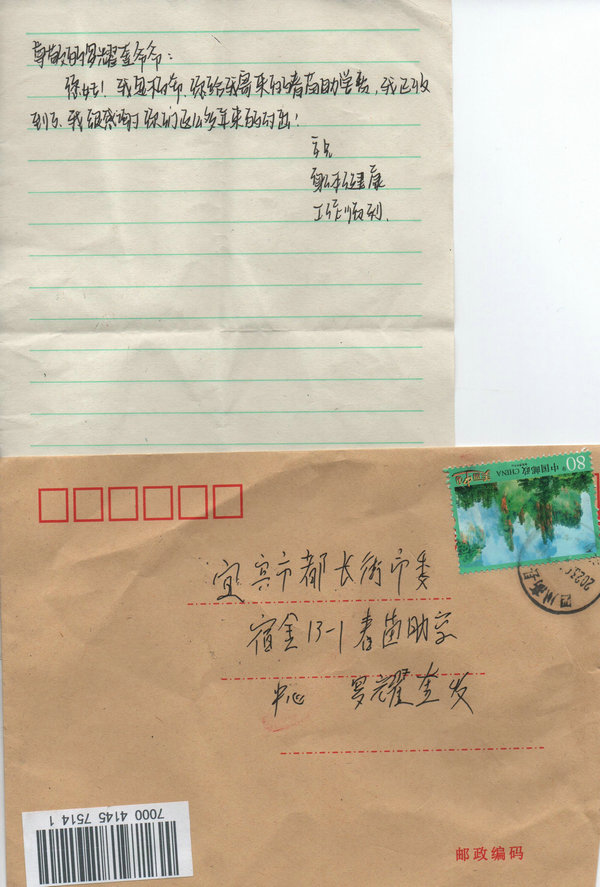 尊敬的罗耀奎爷爷:
你好!我是 你给我寄来的春苗助学款,我已收
到了、我很感谢你们这么多年来的付出!
祝
身体健康
工作顺利.
80 中国邮政 CHINA
宜宾市都长街市委
宿舍13-1春苗助学
中心 罗耀奎 发
7000 4145
7514 1
邮政编码